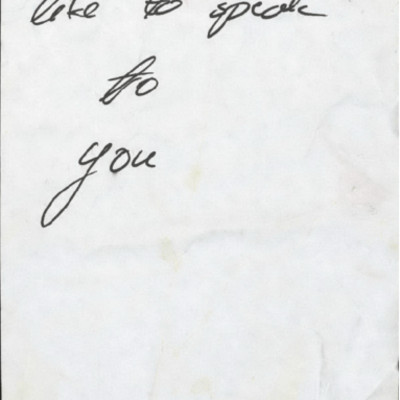 like to speak
to
you